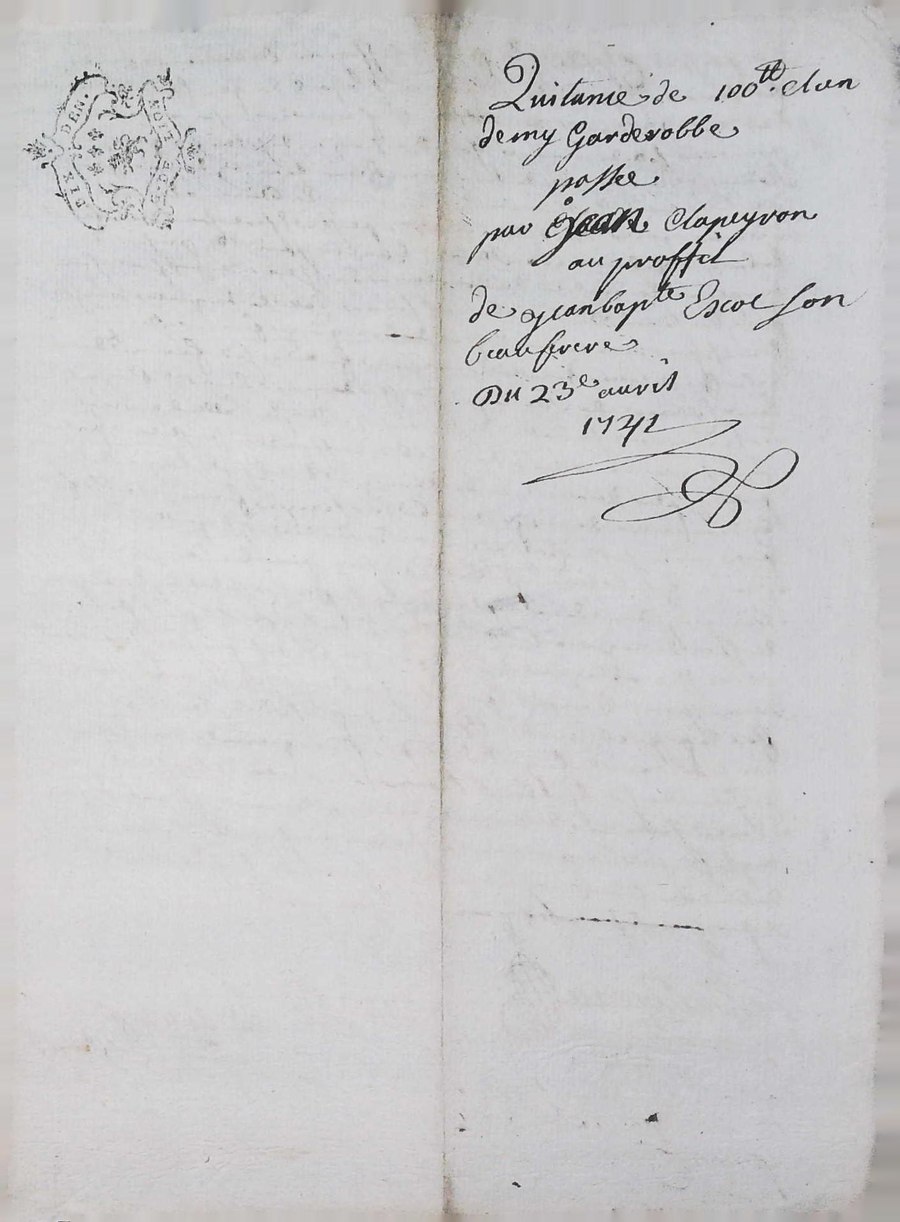 DIX DEN.
MOY
G. DE
Quitance de 100ᵗᵗ. et un
demy Garderobbe
passée
par Jean Clapeyron
au proffit
de jean bapᵗᵉ Escot son
beaufrere
Du 23ᵉ avril
1741